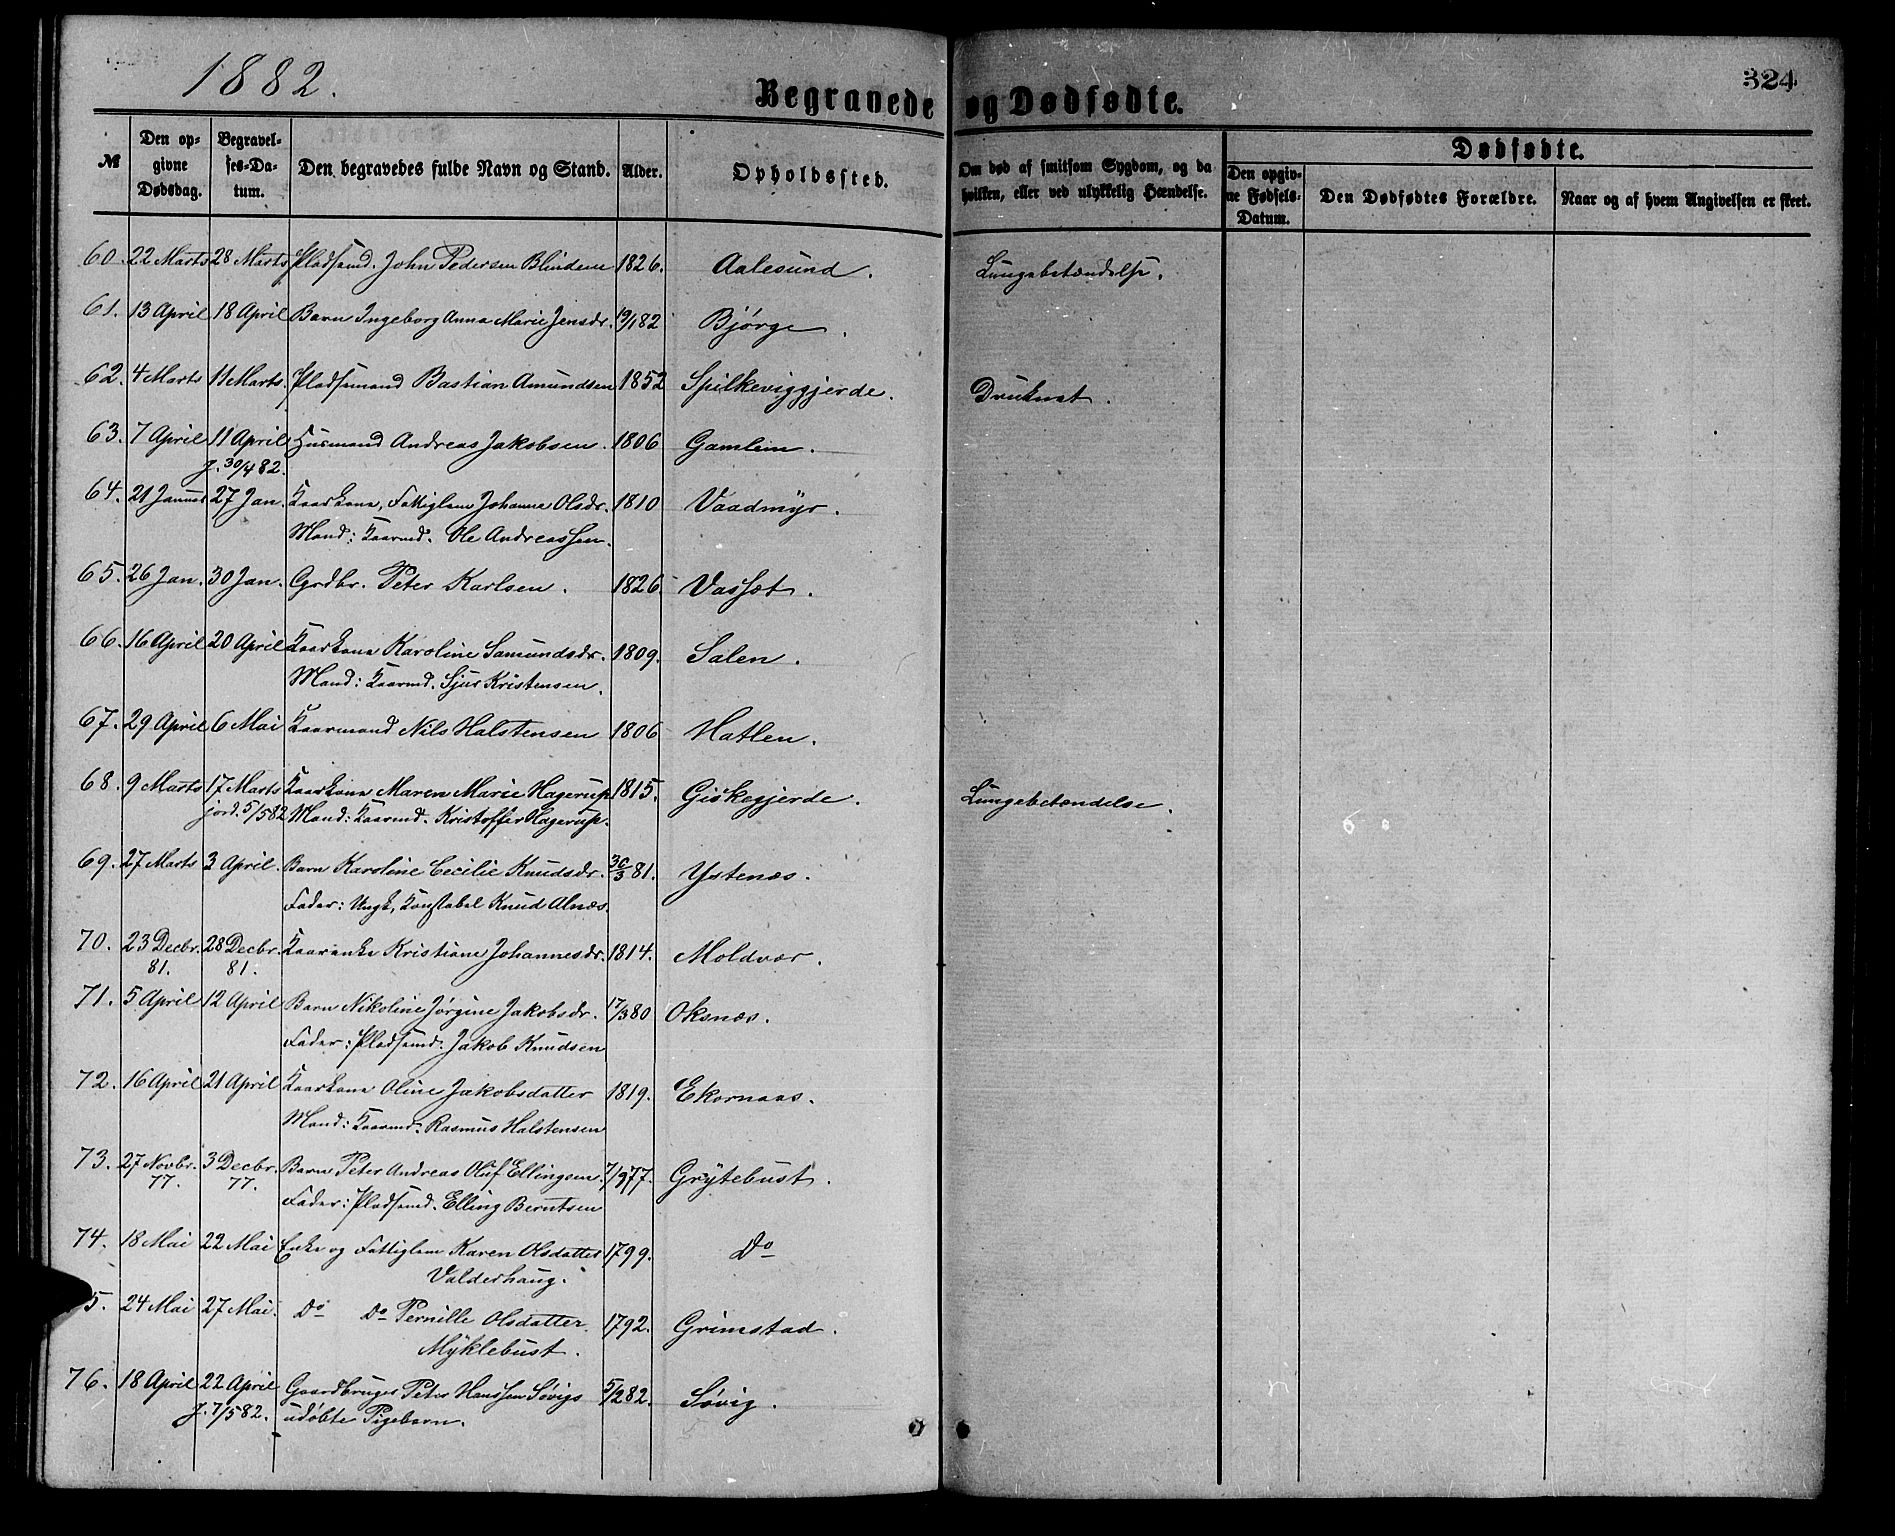 1882.
324
Begravede og Dødfødte.
№ Den opgivne Dødsdag. Begravelses-Datum. Den begravedes fulde Navn og Stand. Alder. Opholdssted. Om død af smitsom Sygdom, og da hvilken, eller ved ulykkelig Hændelse. Dødfødte.
Den opgivne Fødsels-Datum. Den Dødfødtes Forældre. Naar og af hvem Angivelsen er skeet.
60. 22 Marts 28 Marts Pladsmd. John Pedersen Blindem 1826. Aalesund. Lungebetændelse.
61. 13 April 18 April Barn Ingeborg Anna Marie Jensdr. 19/1 82 Bjørge.
62. 4 Marts 11 Marts. Pladsmand Bastian Amundsen 1852 Spilkeviggjerde. Druknet.
63. 7 April 11 April Husmand Andreas Jakobsen. 1806 Gamlem.
j. 30/4 82.
64. 21 Januar 27 Jan. Kaarkone, Fattiglem Johanne Olsdr. 1810 Vaadmyr.
Mand: Kaarmd. Ole Andreassen.
65. 26 Jan. 30 Jan. Grdbr. Peter Karlsen. 1826. Vassæt.
66. 16 April 20 April Kaarkone Karoline Samundsdr. 1809. Salen.
Mand: Kaarmd. Sjur Kristensen.
67. 29 April 6 Mai Kaarmand Nils Halstensen 1806 Hatlen.
68. 9 Marts 17 Marts Kaarkone Maren Marie Hagerup 1815. Giskegjerde. Lungebetændelse.
jord. 5/5 82 Mand: Kaarmd. Kristoffer Hagerup.
69. 27 Marts 3 April. Barn Karoline Cecilie Knudsdr. 30/3 81. Ystenæs.
Fader: Ungk, Konstabel Knud Alnæs.
70. 23 Decbr. 28 Decbr. Kaarenke Kristiane Johannesdr. 1814. Moldvær.
81. 81.
71. 5 April 12 April Barn Nikoline Jørgine Jakobsdr. 17/3 80 Oksnæs.
Fader: Pladsmd. Jakob Knudsen
72. 16 April 21 April Kaarkone Oline Jakobsdatter 1819. Ekornaas.
Mand: Kaarmd. Rasmus Halstensen
73. 27 Novbr. 3 Decbr. Barn Peter Andreas Oluf Ellingsen. 7/9 77. Grytebust.
77. 77. Fader: Pladsmd. Elling Berntsen
74. 18 Mai 22 Mai Enke og Fattiglem Karen Olsdatter 1799. Do
Valderhaug.
5. 24 Mai 27 Mai. Do Do Pernille Olsdatter 1792. Grimstad.
Myklebust.
76. 18 April 22 April Gaardbruger Peter Hanssen Søvigs 5/2 82. Søvig.
j. 7/5 82. udøbte Pigebarn.